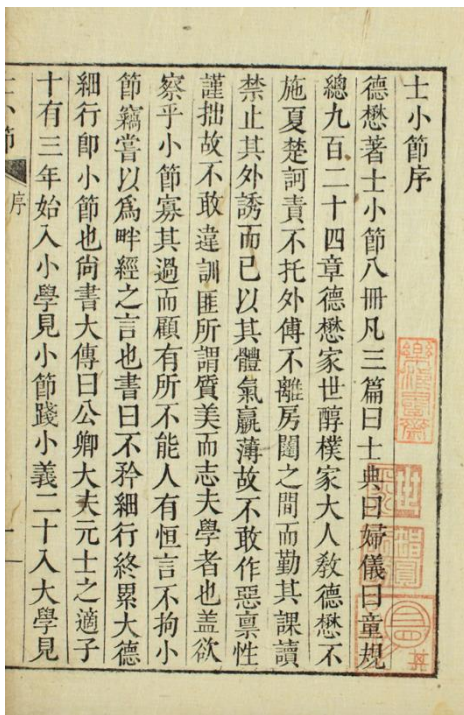 士小節序
德懋著士小節八冊凡三篇曰士典曰婦儀曰童規
總九百二十四章德懋家世醇樸家大人敎德懋不
施夏楚訶責不托外傅不離房闥之間而勤其課讀
禁止其外誘而已以其體氣羸薄故不敢作惡禀性
謹拙故不敢違訓匪所謂質美而志夫學者也盖欲
察乎小節寡其過而顧有所不能人有恒言不拘小
節竊嘗以爲畔經之言也書曰不矜細行終累大德
細行卽小節也尙書大傳曰公卿大夫元士之適子
十有三年始入小學見小節踐小義二十入大學見
士小節
序
一